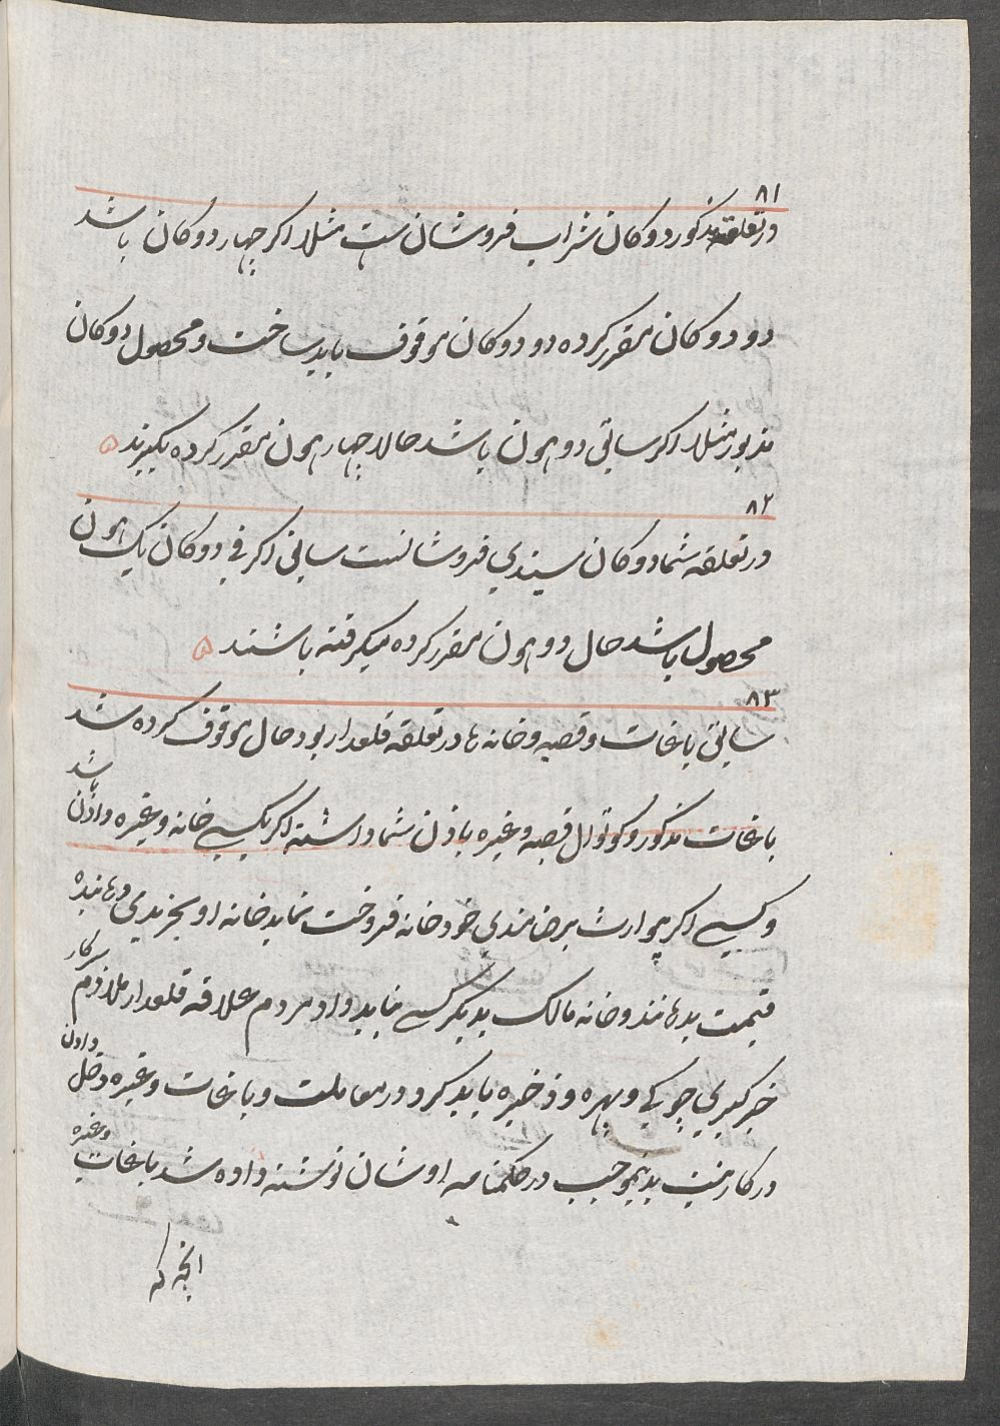 ۸۱
در تعلقه مذکور دوکان شراب فروشان ست مثلا اکر چهار دوکان باشد
دو دوکان مقرر کرده دو دوکان موقوف باید ساخت و محصول دوکان
مذبور مثلا اکر سابق دو هون باشد حالا چهار هون مقرر کرده بکیرند ۵
۸۲
در تعلقه شما دوکان سیندی فروشانست سابق اکر فی دوکان یک هون
محصول باشد حال دو هون مقرر کرده میکرفته باشند ۵
۸۳
سابق باغات و قصبه و خانه ها در تعلقه قلعدار بود حال موقوف کرده شد
باغات مذکور و کوتوال قصبه و غیره باذن شما داشته اکر بکسے خانه و غیره دادن باشد
و کسے اکر بیوارث برضامندی خود خانه فروخت نماید خانه او بخریدی دهانیده
قیمت بدهانند و خانه مالک بدیکر کسے نماید داد مردم علاقه قلعدار ملازم سرکار
خبرکیری چوکی و پهره و ذخیره باید کرد در معاملت و باغات و غیره دخل دادن
درکار نیست بدینموجب در حکمنامه اوشان نوشته داده شد باغات و غیره
انچه که